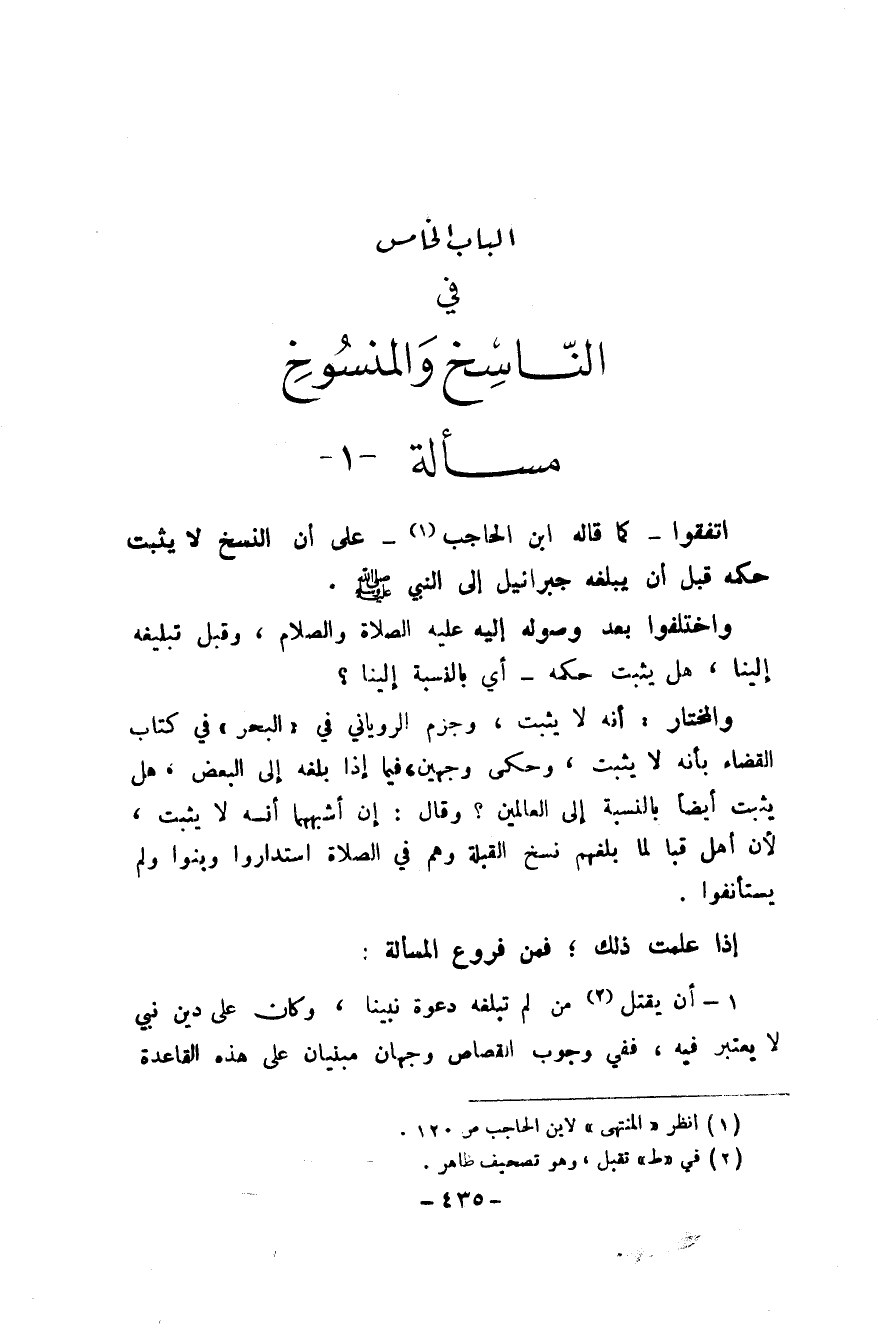 الباب الخامس
في
النّاسِخ وَالمنسُوخِ
مسألة -١-
اتفقوا ـ كما قاله ابن الحاجب (١) ـ على أن النسخ لا يثبت
حكمه قبل أن يبلغه جبرائيل إلى النبي ﷺ .
واختلفوا بعد وصوله إليه عليه الصلاة والصلام ، وقبل تبليغه
إلينا ، هل يثبت حكمه ـ أي بالنسبة إلينا ؟
والمختار : أنه لا يثبت ، وجزم الروياني في «البحر» في كتاب
القضاء بأنه لا يثبت ، وحكى وجهين، فيما إذا بلغه إلى البعض ، هل
يثبت أيضاً بالنسبة إلى العالمين ؟ وقال : إن أشبهها أنـه لا يثبت ،
لأن أهل قبا لما بلغهم نسخ القبلة وهم في الصلاة استداروا وبنوا ولم
يستأنفوا .
إذا علمت ذلك ؛ فمن فروع المسألة :
١ – أن يقتل (٢) من لم تبلغه دعوة نبينا ، وكان على دين نبي
لا يعتبر فيه ، ففي وجوب القصاص وجهان مبنيان على هذه القاعدة
(١) انظر «المنتهى» لابن الحاجب ص ١٢٠ .
(٢) في «ط» تقبل ، وهو تصحيف ظاهر .
– ٤٣٥ –